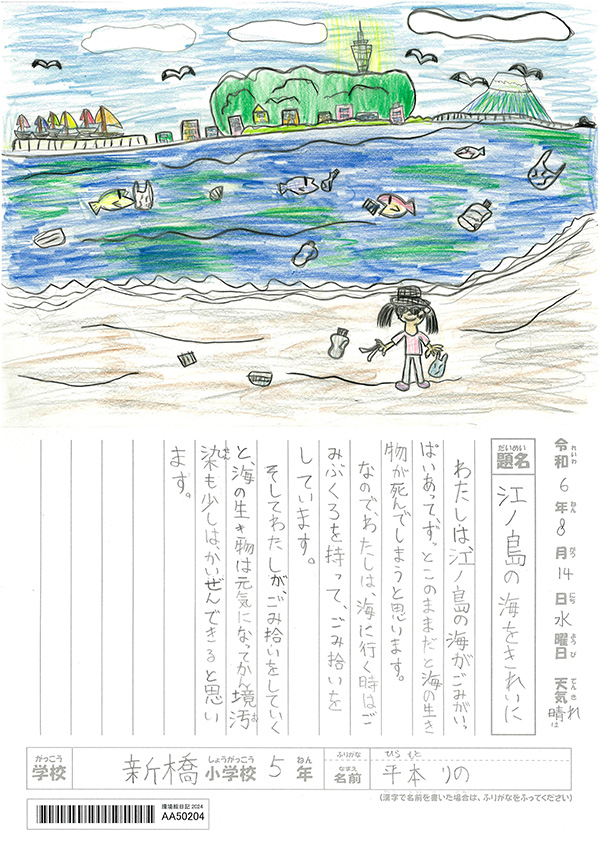 令和6年8月14日水曜日 天気晴れ
れいわ ねん がつ にち ようび てんき は
だいめい
題名
江ノ島の海をきれいに
わたしは江ノ島の海がごみがいっ
ぱいあってずっとこのままだと海の生き
物が死んでしまうと思います。
なのでわたしは、海に行く時はご
みぶくろを持って、ごみ拾いを
しています。
そしてわたしが、ごみ拾いをしていく
と、海の生き物は元気になってかん境汚
染も少しは、かいぜんできると思い
ます。
がっこう
学校
新橋
しょうがっこう
小学校
5
ねん
年
ふりがな
ひらもと
なまえ
名前
平本りの
(漢字で名前を書いた場合は、ふりがなをふってください)
環境絵日記2024
AA50204